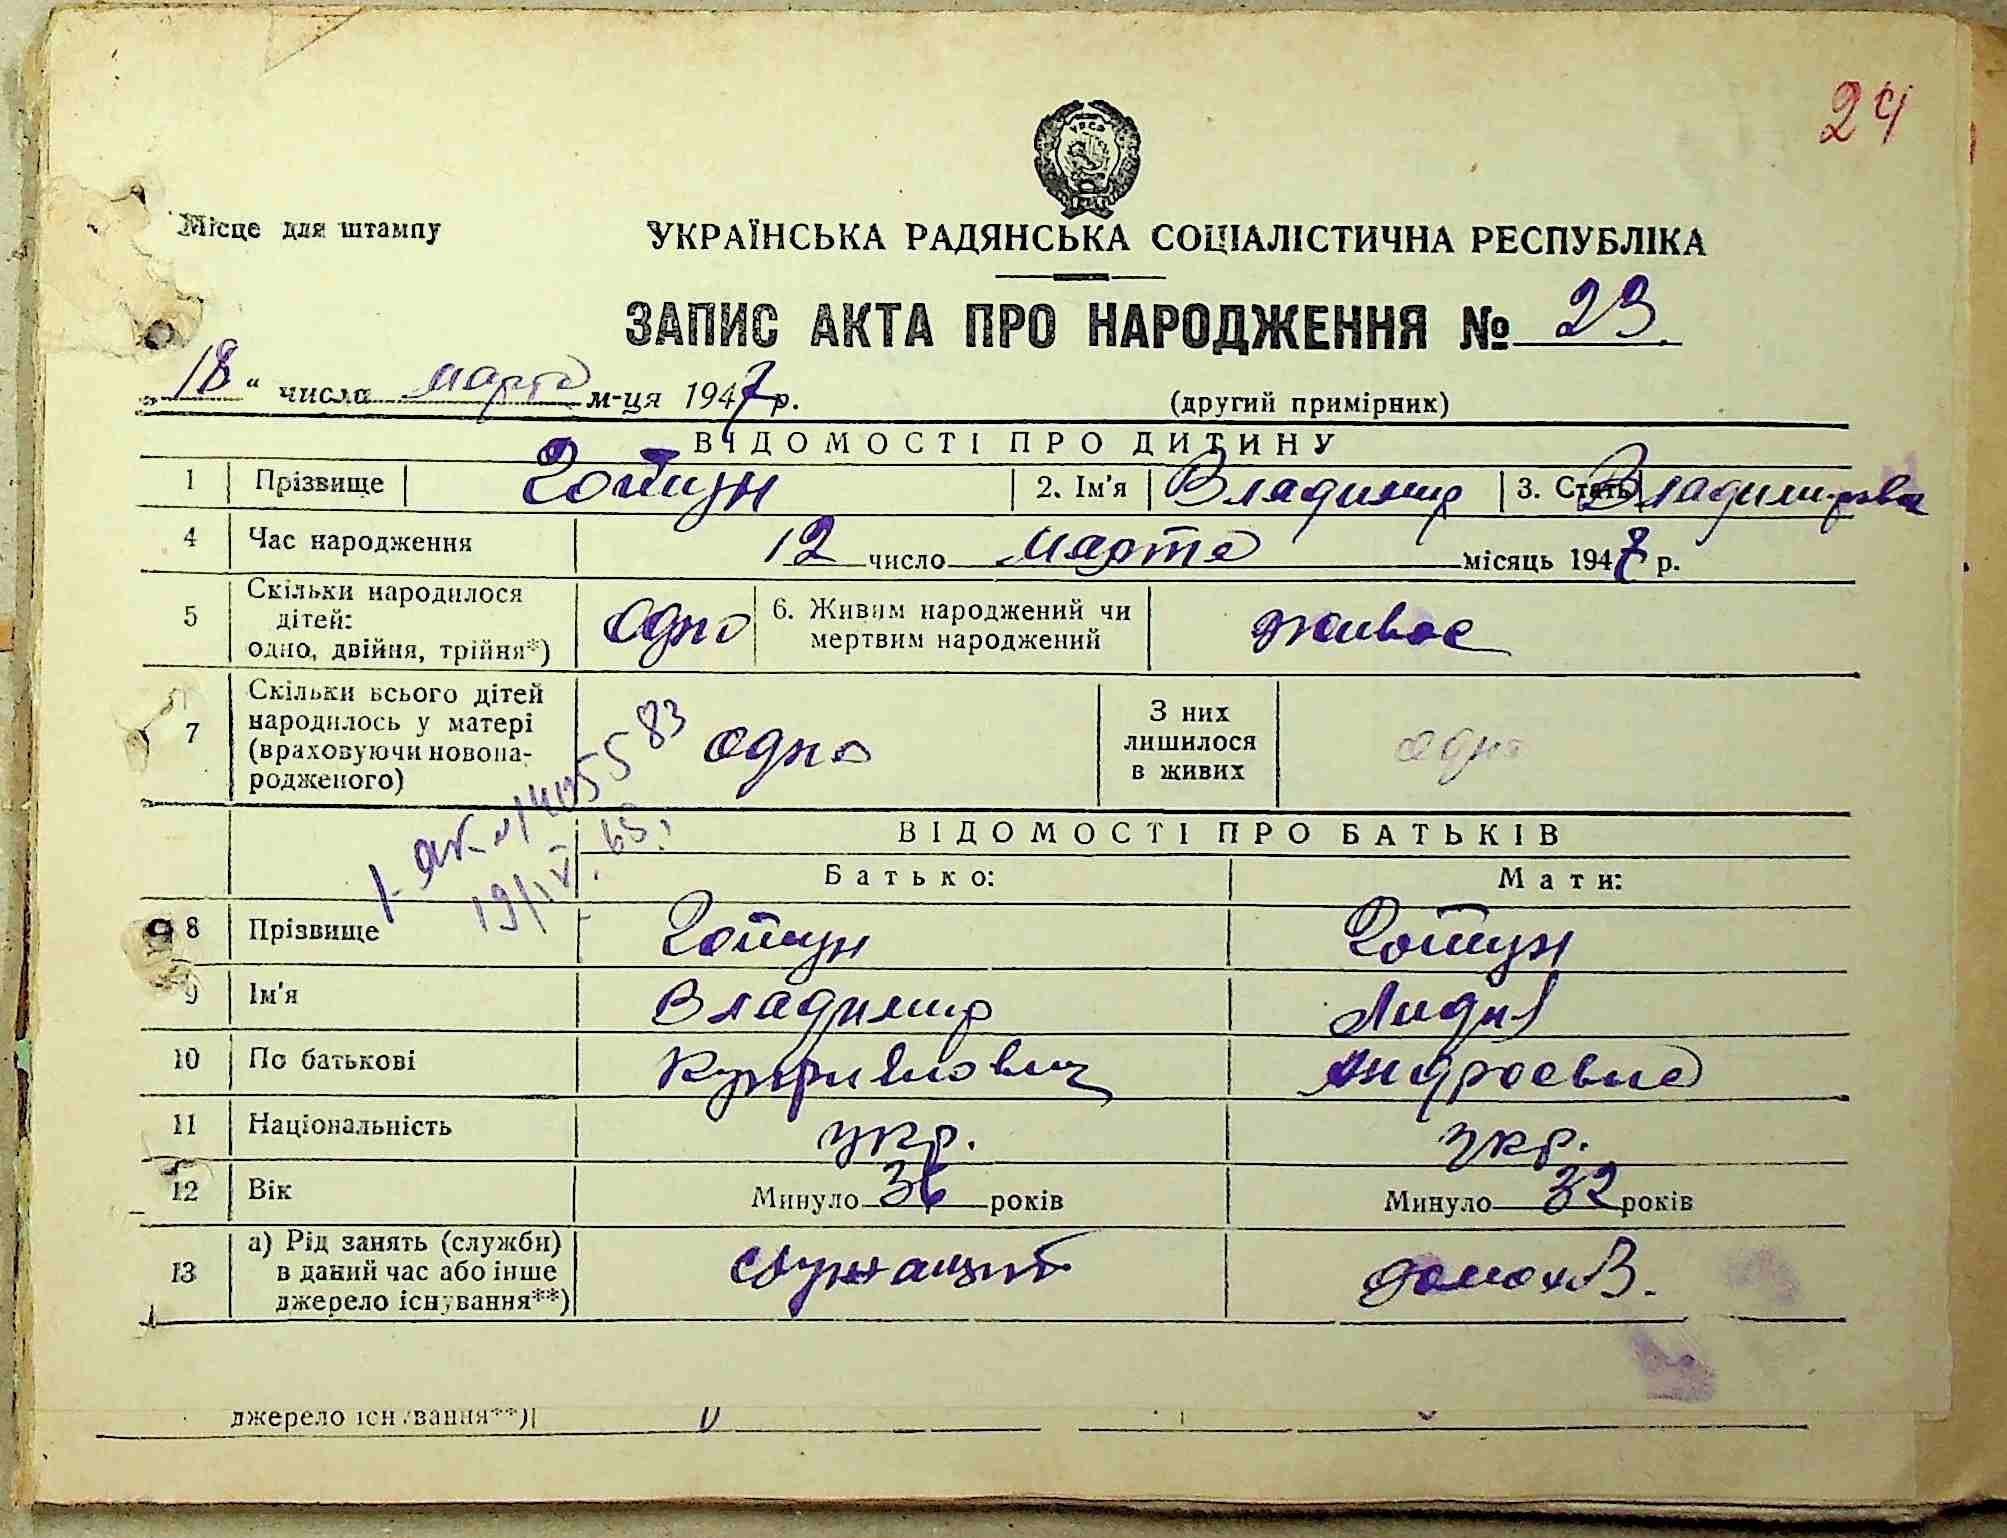 24
Місце для штампу
УКРАЇНСЬКА РАДЯНСЬКА СОЦІАЛІСТИЧНА РЕСПУБЛІКА
ЗАПИС АКТА ПРО НАРОДЖЕННЯ № 23.
„18“ числа марта м-ця 1947 р.
(другий примірник)
ВІДОМОСТІ ПРО ДИТИНУ
1 Прізвище 2. Ім'я Владимир 3. Стать
4 Час народження 12 число марта місяць 1947 р.
5 Скільки народилося дітей: одно, двійня, трійня*) одно 6. Живим народжений чи мертвим народжений живое
7 Скільки всього дітей народилось у матері (враховуючи новона-родженого) одно З них лишилося в живих одно
ВІДОМОСТІ ПРО БАТЬКІВ
Батько: Мати:
8 Прізвище
9 Ім'я Владимир Лидия
10 По батькові Куприянович Андреевна
11 Національність укр. укр.
12 Вік Минуло 36 років Минуло 32 років
13 а) Рід занять (служби) в даний час або інше джерело існування**) служащий домохоз.
джерело існування**)